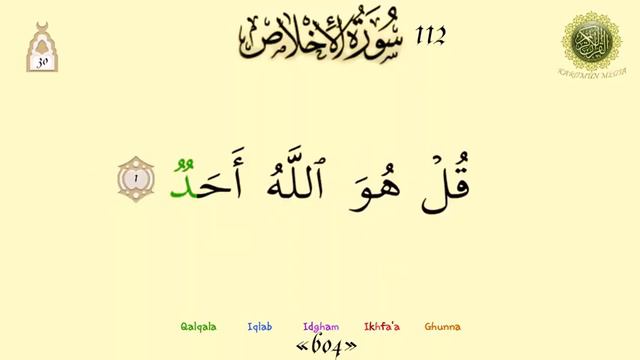 سُورَةُ الإِخْلَاصِ 112
30
KARIMUN MEDIA
قُلْ هُوَ ٱللَّهُ أَحَدٌ 1
Qalqala Iqlab Idgham Ikhfa'a Ghunna
«604»